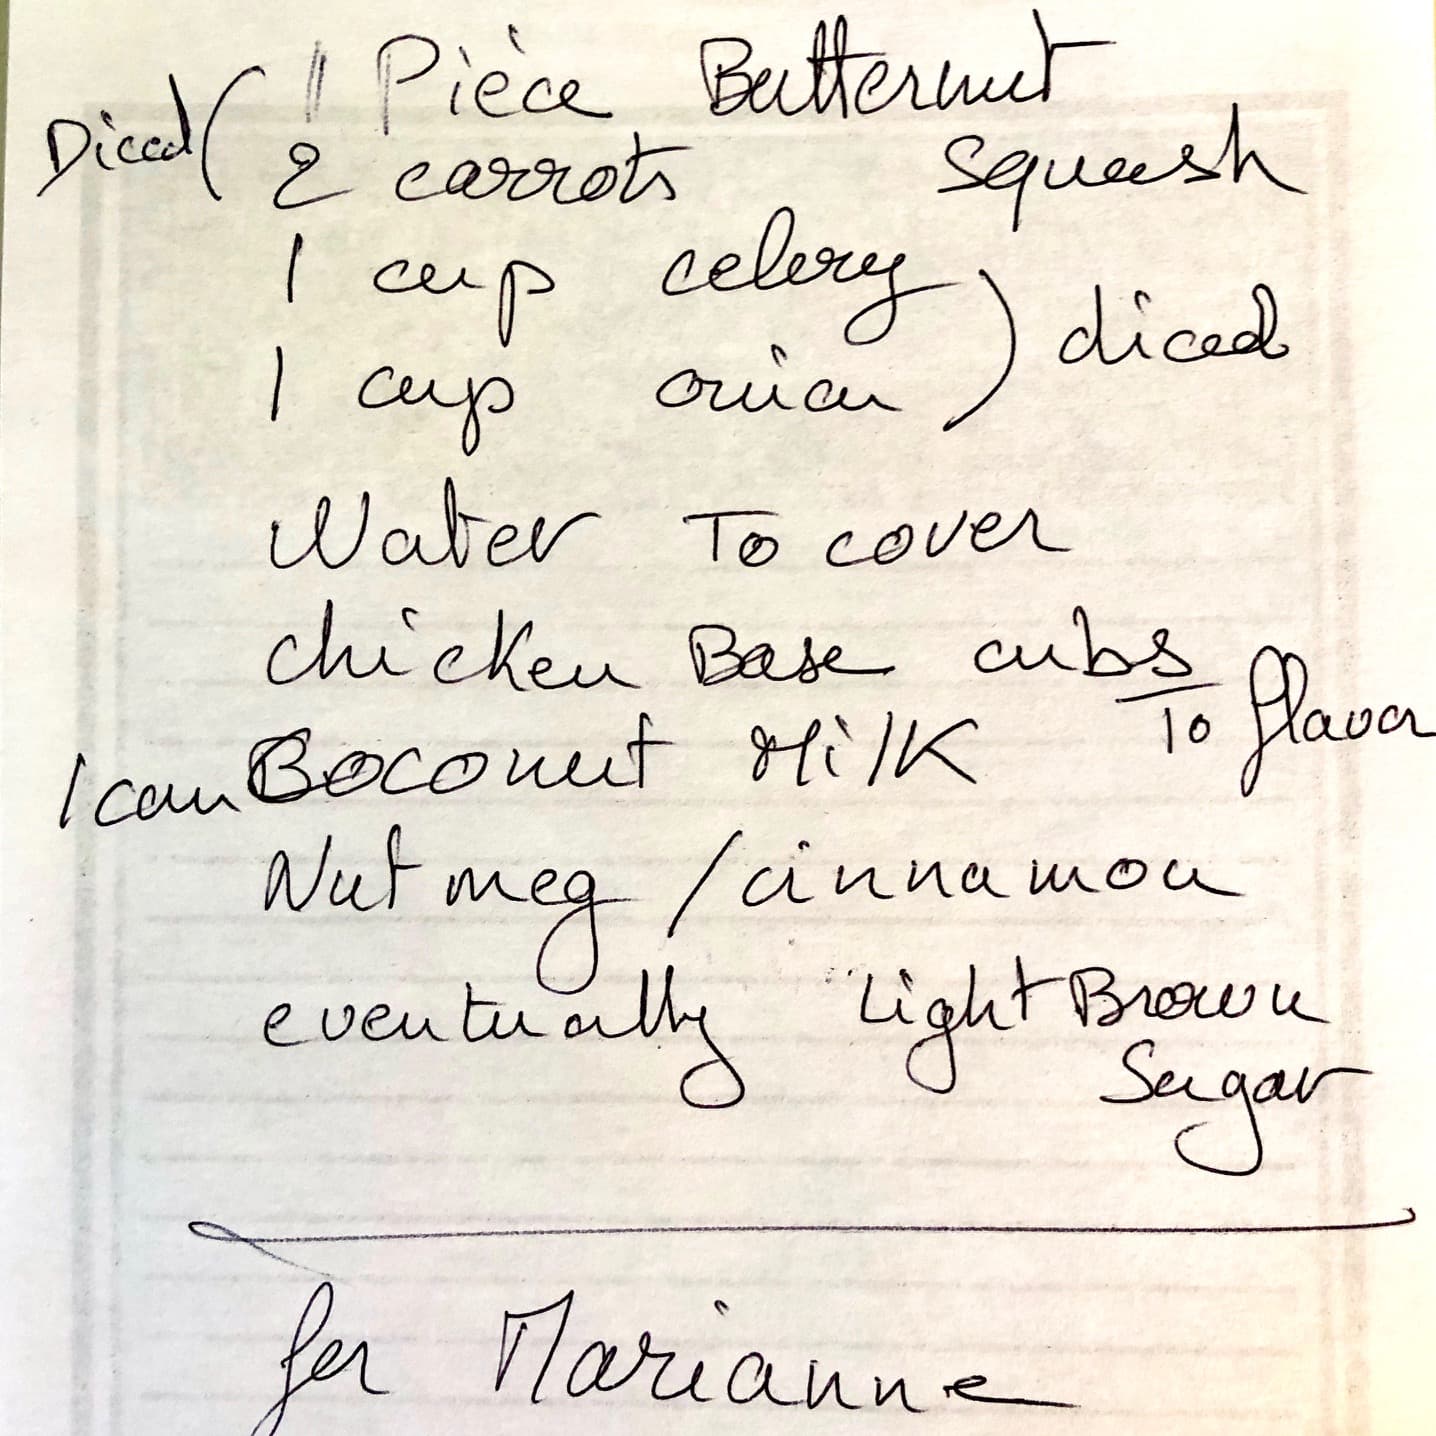 Diced ( 1 Pièce Butternut
2 carrots Squash
1 cup celery
1 cup onion ) diced
Water To cover
chicken Base cubs
To flavor
1 can Coconut Milk
Nutmeg / cinnamon
eventually Light Brown
Sugar
for Marianne